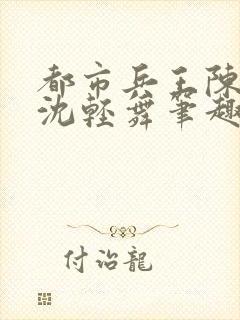 都市兵王陳
沈輕舞筆趣
付治龍